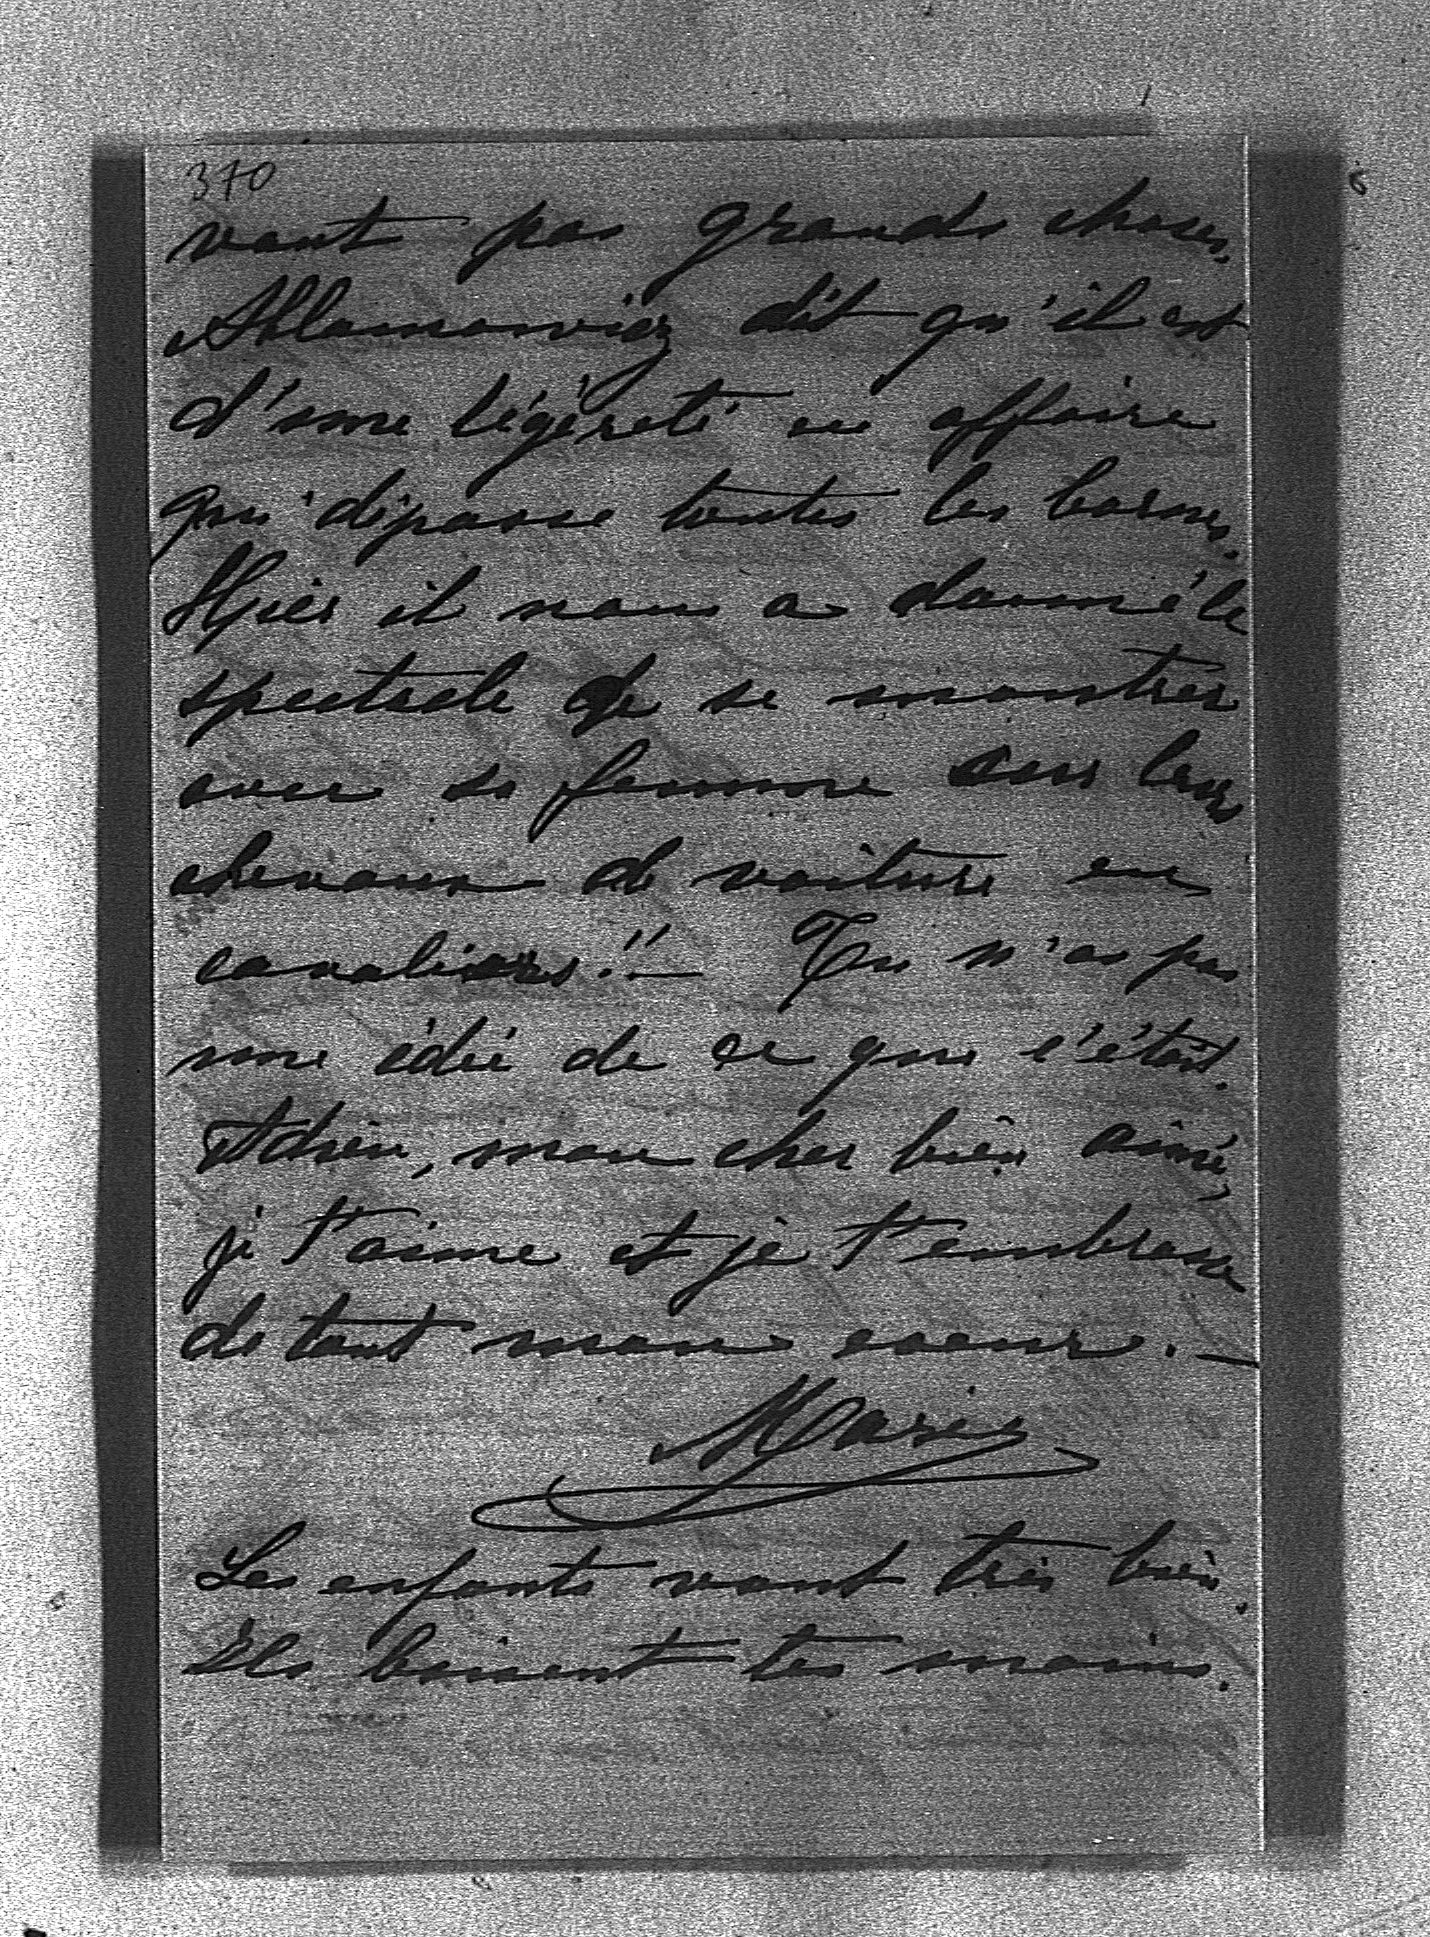 370
vaut pas grands choses,
Ablamowicz dit qu'il est
d'une légéreté en affaire
qui dépasse toutes les bornes.
Hier il nous a donné le
spectacle de se montrer
avec sa femme sur leurs
chevaux de voiture en
cavaliers!! — Tu n'as pas
une idée de ce que c'était.
Adrien, mon cher bien aimé,
je t'aime et je t'embrasse
de tout mon coeur. —
Marie
Les enfants vont très bien.
Ils baisent tes mains.